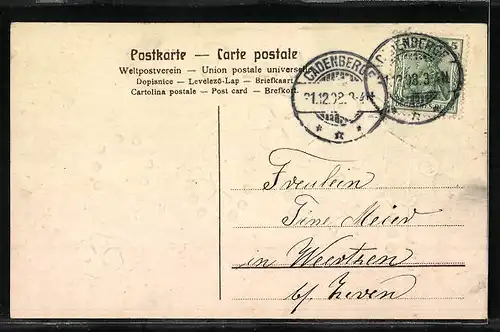 Postkarte — Carte postale
Weltpostverein — Union postale universelle
Dopisnice — Levelező-Lap — Briefkaart
Cartolina postale — Post card — Brefkort
CADENBERGE
31.12.08.3-4N
CADENBERGE
12.08.3-4N
5
Freulein
Tine Meier
in Weertzen
bf. Zeven